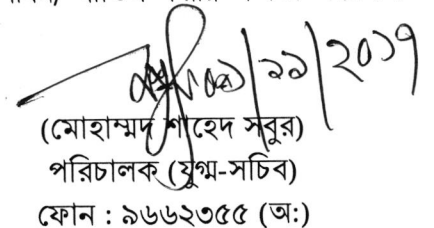 ০৯/১১/২০১৭
(মোহাম্মদ শাহেদ সবুর)
পরিচালক (যুগ্ম-সচিব)
ফোন : ৯৬৬২৩৫৫ (অ:)